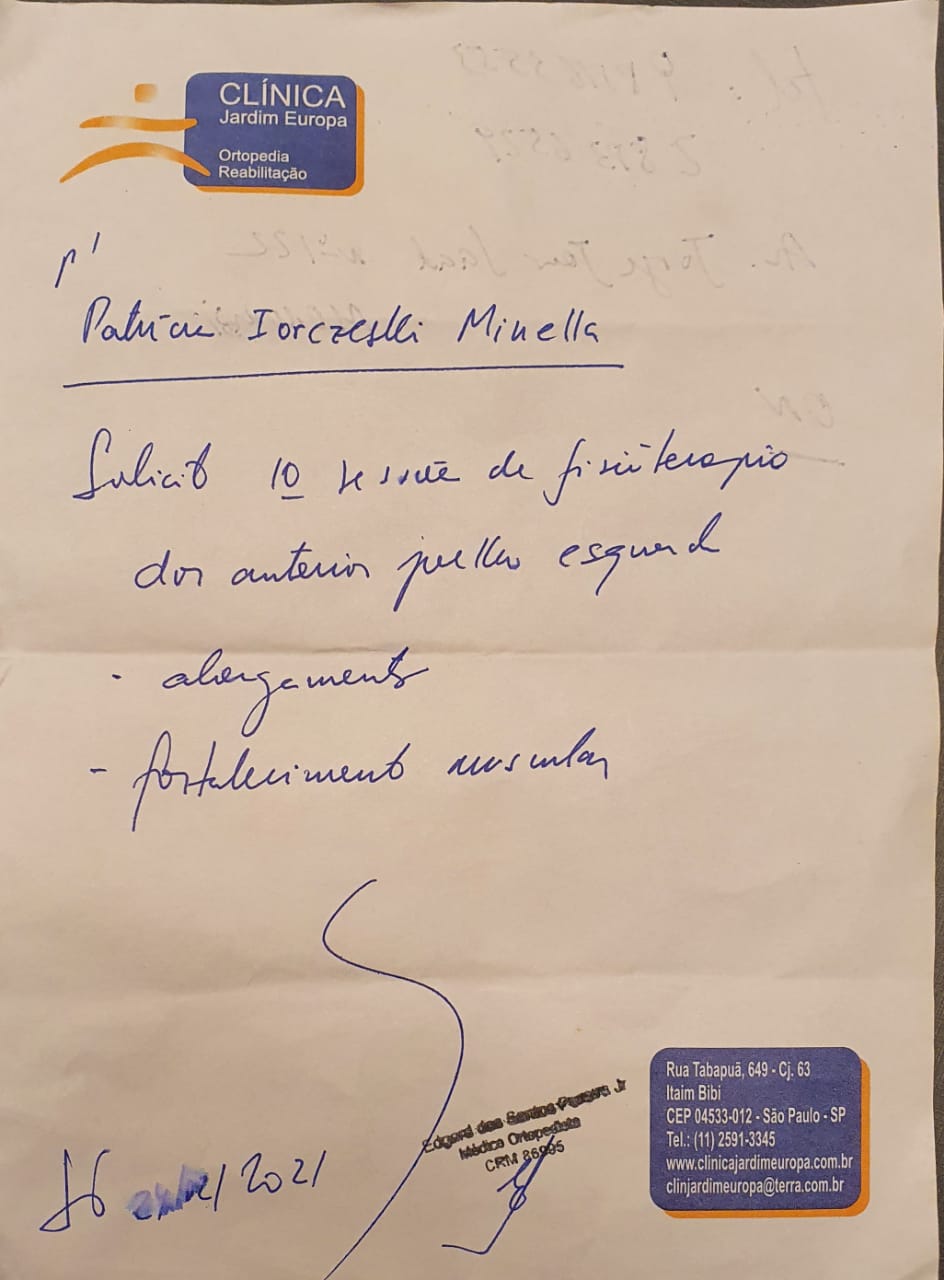 CLÍNICA
Jardim Europa
Ortopedia
Reabilitação
p'
Patrícia Iorczeski Minella
Solicito 10 sessões de fisioterapia
dor anterior joelho esquerdo
- alongamento
- fortalecimento muscular
Edgard dos Santos Pereira Jr
Médico Ortopedista
CRM 86995
/2021
Rua Tabapuã, 649 - Cj. 63
Itaim Bibi
CEP 04533-012 - São Paulo - SP
Tel.: (11) 2591-3345
www.clinicajardimeuropa.com.br
clinjardimeuropa@terra.com.br